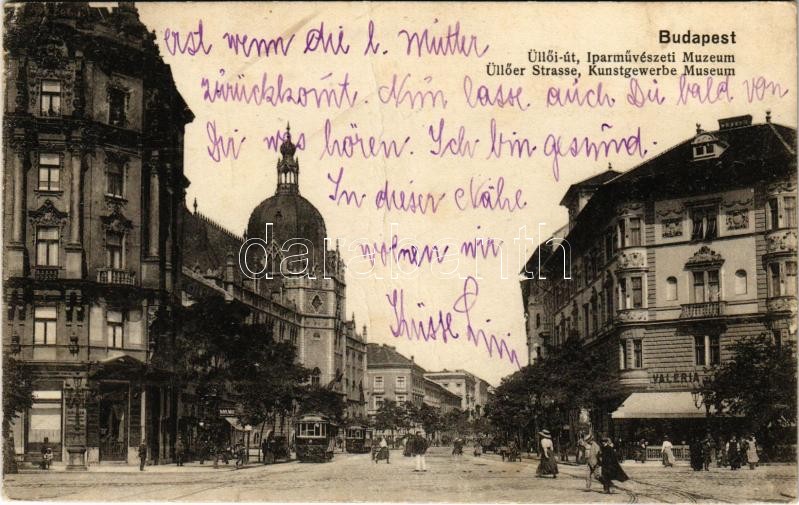 Budapest
Üllői-út, Iparművészeti Muzeum
Üllőer Strasse, Kunstgewerbe Museum
erst wenn die l. Mutter
zurückkomt. Nun lasse auch Du bald von
Dir was hören. Ich bin gesund.
In dieser Nähe
wohnen wir
Küsse
darabanth
VALERIA